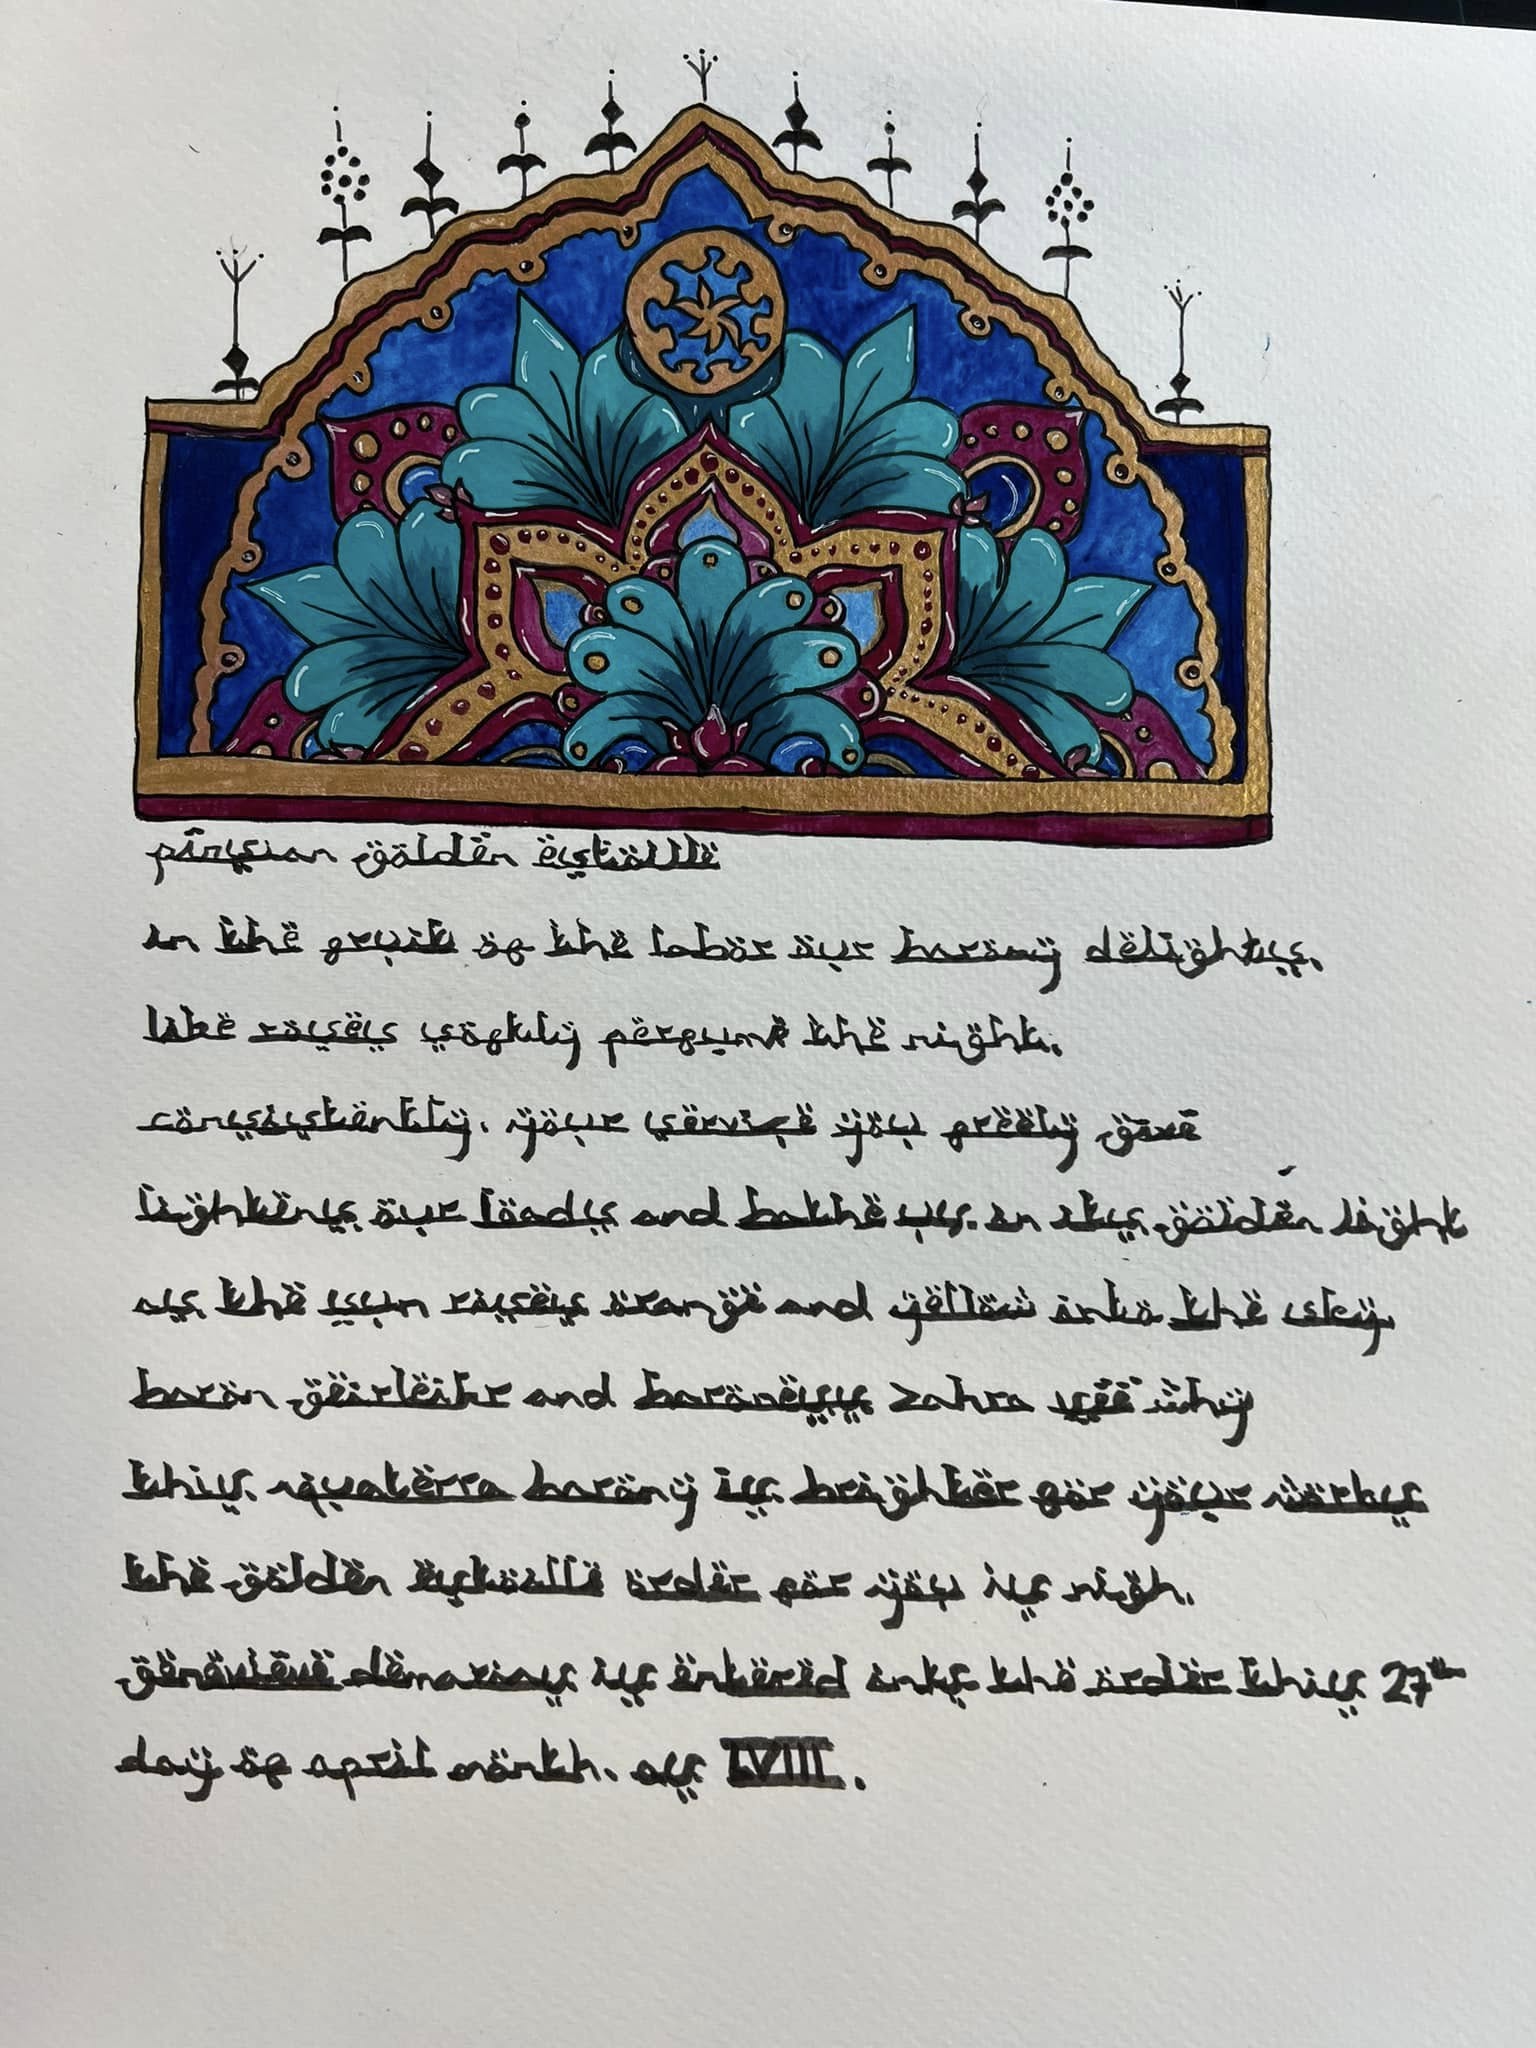 persian golden estoille
in the fruit of the labor our barony delights,
like roses softly perfume the night.
consistently, your service you freely gave
lightens our loads and bathe us, in its golden light
as the sun rises orange and yellow into the sky,
baron geirleikr and baroness zahra see why
this aquaterra barony is brighter for your works
the golden estoille order for you is nigh.
genevieve demarias is entered into the order this 27th
day of april month, as LVIII.